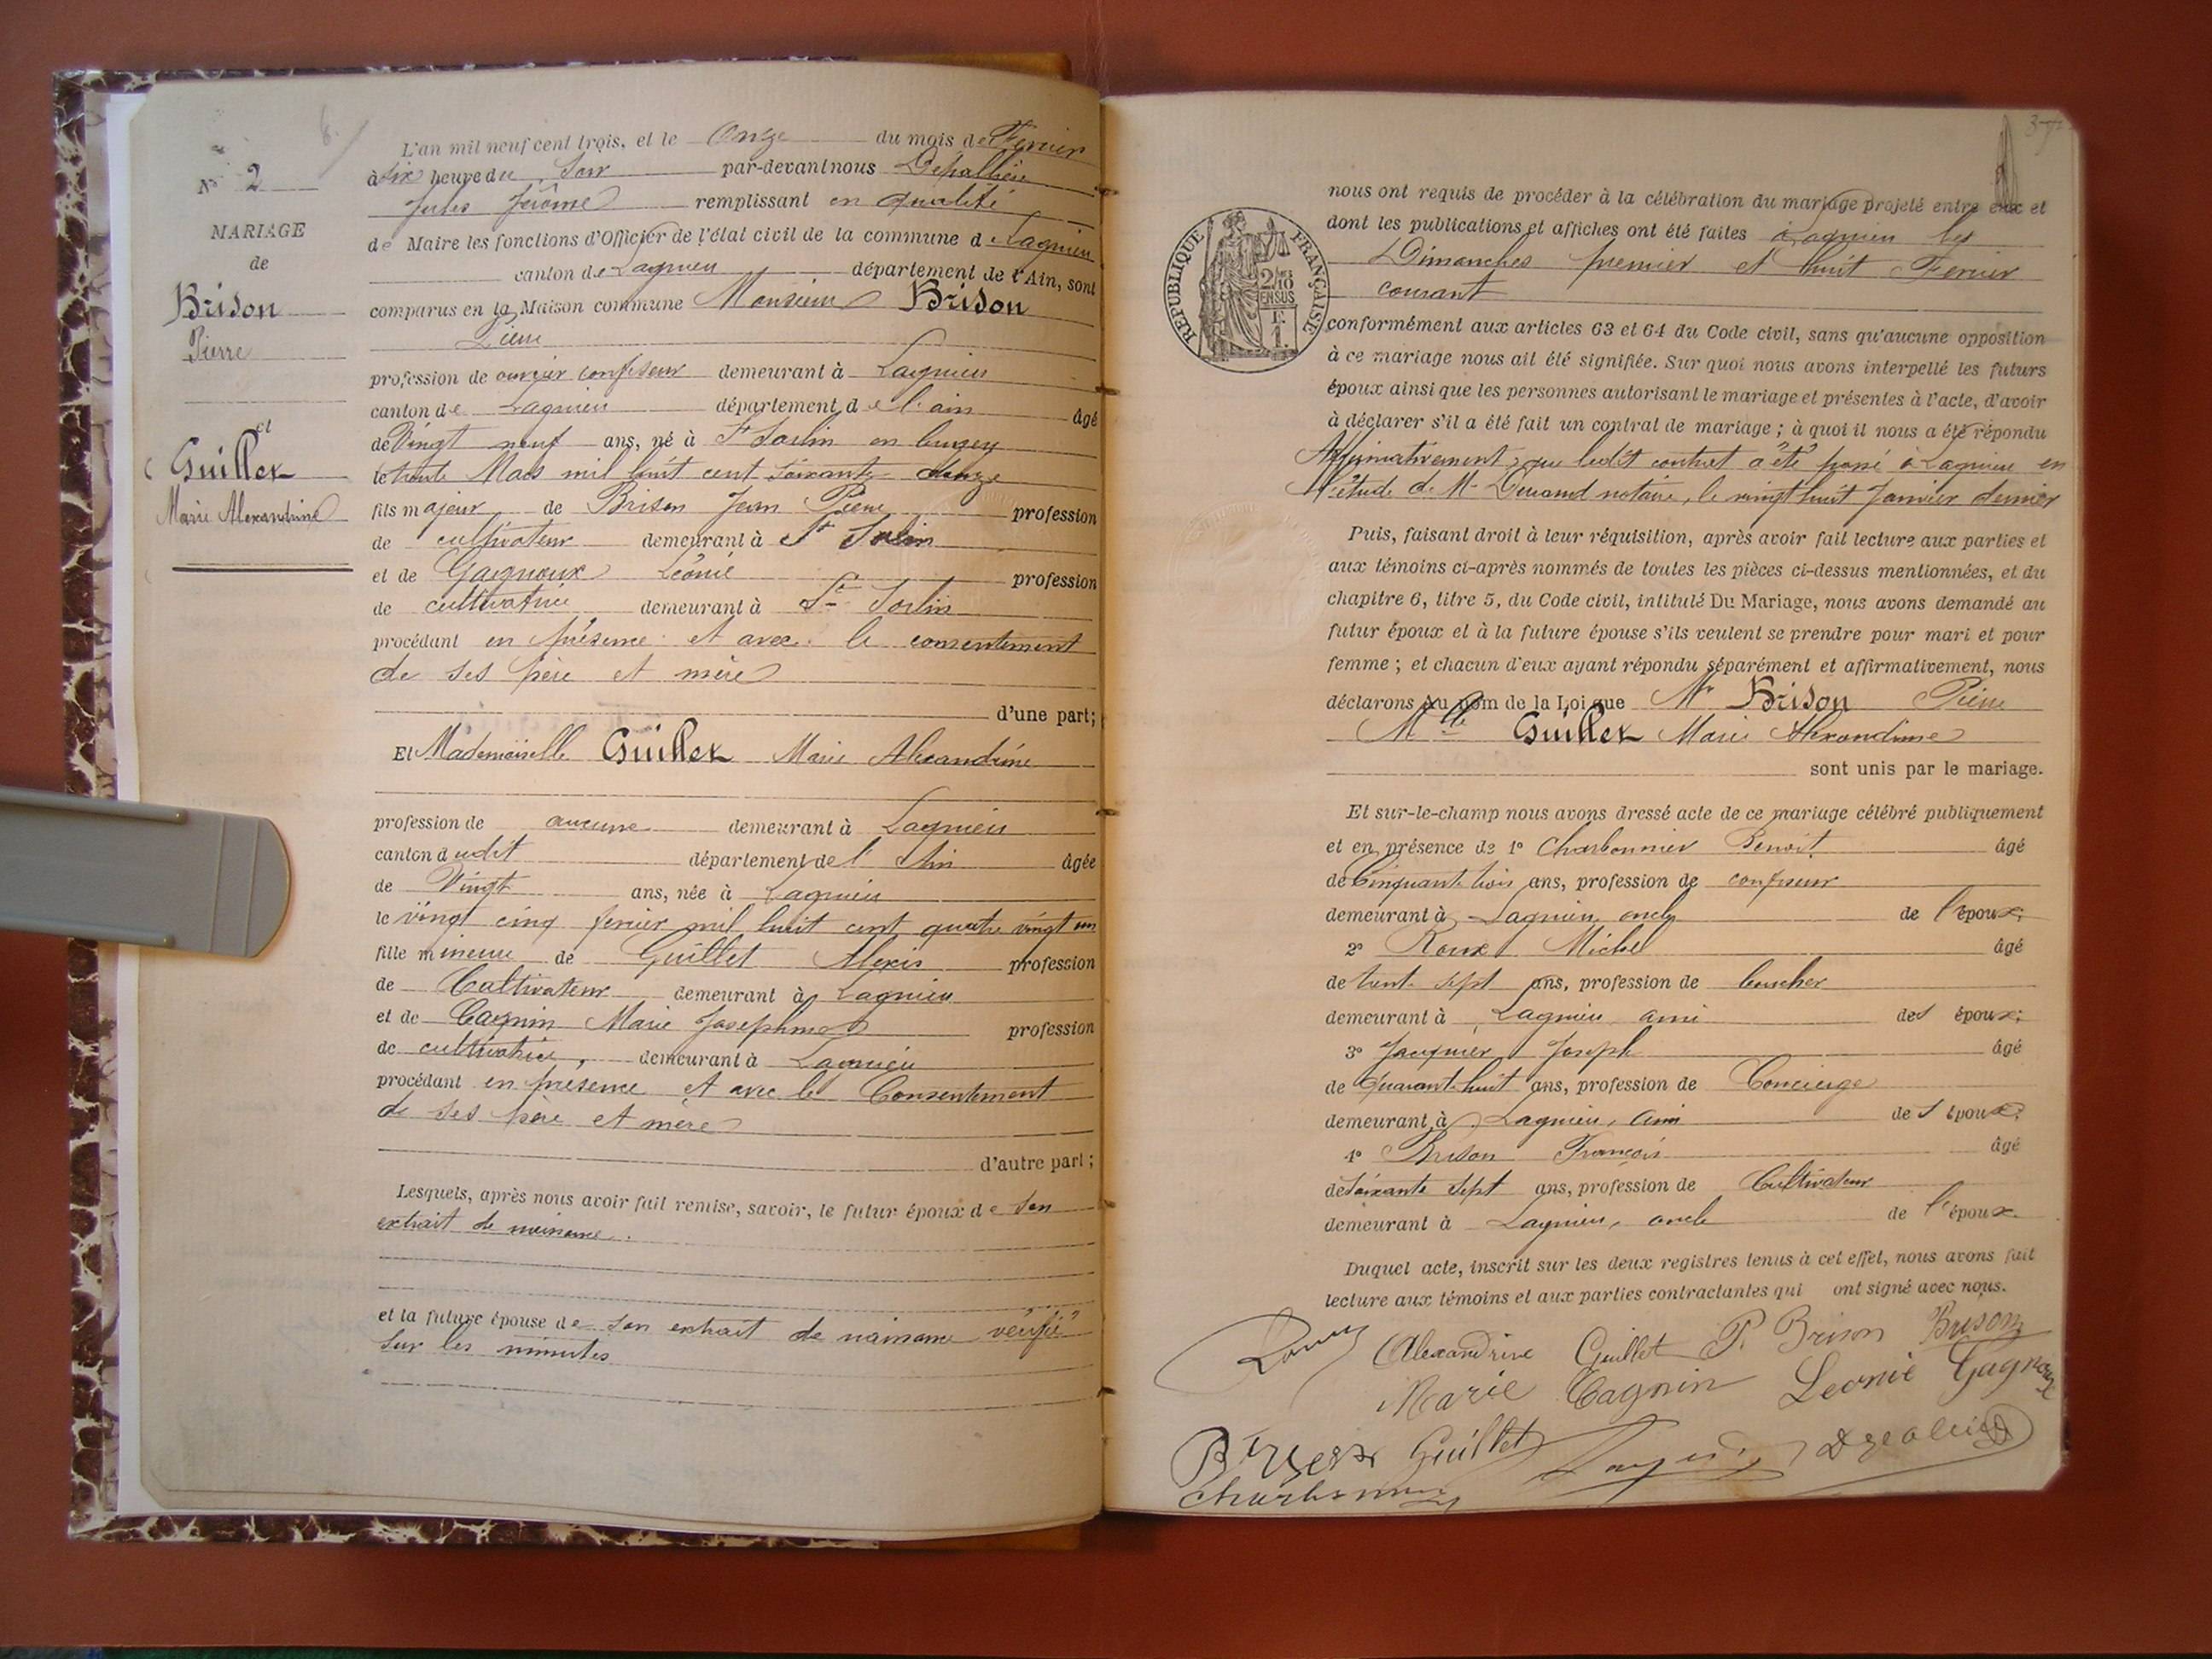 N° 2
MARIAGE
de
Brison
Pierre
et
Guillet
Marie Alexandrine
L'an mil neuf cent trois, et le Onze du mois de Fevrier
à six heure du Soir par-devant nous Depallière
Jules Jérôme remplissant en qualité
de Maire les fonctions d'Officier de l'état civil de la commune de Lagnieu
canton de Lagnieu département de l'Ain, sont
comparus en la Maison commune Monsieur Brison
Pierre
profession de ouvrier confiseur demeurant à Lagnieu
canton de Lagnieu département de l'ain âgé
de Vingt neuf ans, né à St Sorlin en bugey
le trente Mars mil huit cent soixante
fils majeur de Brison Jean Pierre profession
de cultivateur demeurant à St Sorlin
et de Gagnoux Léonie profession
de cultivatrice demeurant à St Sorlin
procédant en présence et avec le consentement
de ses père et mère
d'une part;
Et Mademoiselle Guillet Marie Alexandrine
profession de aucune demeurant à Lagnieu
canton dudit département de l'Ain âgée
de Vingt ans, née à Lagnieu
le vingt cinq fevrier mil huit cent quatre vingt un
fille mineure de Guillet Alexis profession
de Cultivateur demeurant à Lagnieu
et de Cagnin Marie Josephine profession
de cultivatrice, demeurant à Lagnieu
procédant en présence et avec le Consentement
de ses père et mère
d'autre part;
Lesquels, après nous avoir fait remise, savoir, le futur époux de son
extrait de naissance.
et la future épouse de son extrait de naissance vérifié
sur les minutes
37
nous ont requis de procéder à la célébration du mariage projeté entre eux et
dont les publications et affiches ont été faites à Lagnieu les
Dimanches premier et huit Fevrier
courant
RÉPUBLIQUE FRANÇAISE
2/10
EN SUS
F.
1.
conformément aux articles 63 et 64 du Code civil, sans qu'aucune opposition
à ce mariage nous ait été signifiée. Sur quoi nous avons interpellé les futurs
époux ainsi que les personnes autorisant le mariage et présentes à l'acte, d'avoir
à déclarer s'il a été fait un contrat de mariage; à quoi il nous a été répondu
Affirmativement, que ledit contrat a été passé à Lagnieu en
l'étude de Mr Durand notaire, le vingt huit Janvier dernier
Puis, faisant droit à leur réquisition, après avoir fait lecture aux parties et
aux témoins ci-après nommés de toutes les pièces ci-dessus mentionnées, et du
chapitre 6, titre 5, du Code civil, intitulé Du Mariage, nous avons demandé au
futur époux et à la future épouse s'ils veulent se prendre pour mari et pour
femme; et chacun d'eux ayant répondu séparément et affirmativement, nous
déclarons au nom de la Loi que Mr Brison Pierre
Mlle Guillet Marie Alexandrine
sont unis par le mariage.
Et sur-le-champ nous avons dressé acte de ce mariage célébré publiquement
et en présence de 1° Charbonnier Benoit âgé
de Cinquante trois ans, profession de confiseur
demeurant à Lagnieu, oncle de l'époux;
2° Roux Michel âgé
de trente sept ans, profession de boucher
demeurant à Lagnieu, ami des époux;
3° Jacquier Joseph âgé
de Quarante huit ans, profession de Concierge
demeurant à Lagnieu, Ami des époux;
4° Brison François âgé
de Soixante sept ans, profession de Cultivateur
demeurant à Lagnieu, oncle de l'époux.
Duquel acte, inscrit sur les deux registres tenus à cet effet, nous avons fait
lecture aux témoins et aux parties contractantes qui ont signé avec nous.
Roux Alexandrine Guillet P. Brison Brison
Marie Cagnin Leonie Gagnoux
Guillet
Charbonnier